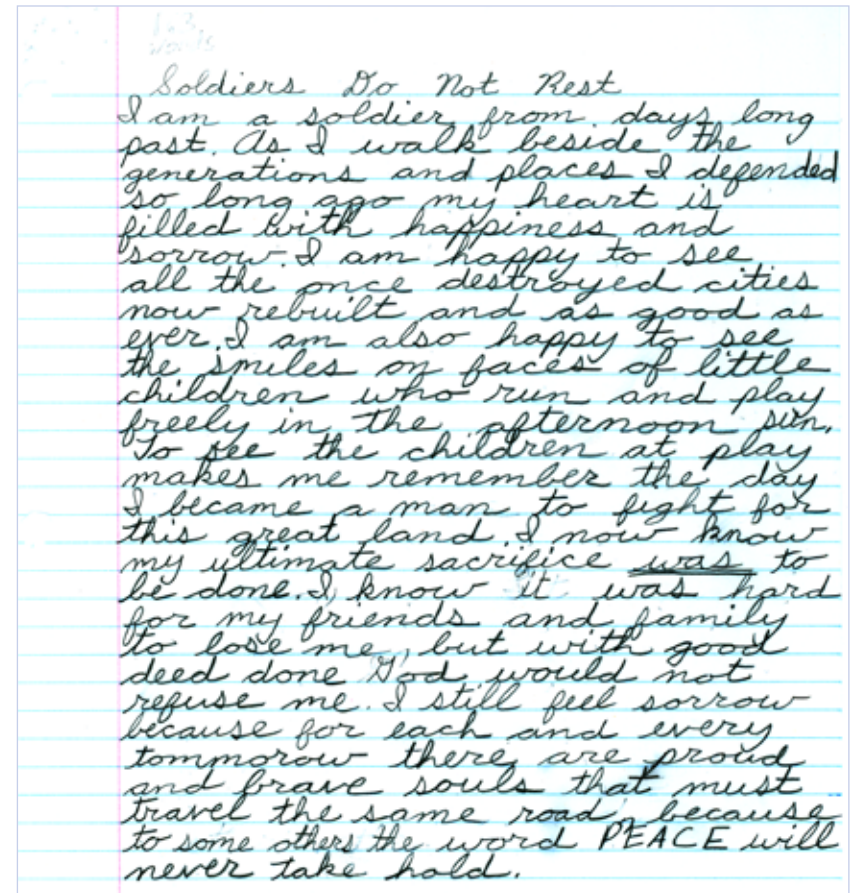 Soldiers Do Not Rest
I am a soldier from days long
past. As I walk beside the
generations and places I defended
so long ago my heart is
filled with happiness and
sorrow. I am happy to see
all the once destroyed cities
now rebuilt and as good as
ever. I am also happy to see
the smiles on faces of little
children who run and play
freely in the afternoon sun.
To see the children at play
makes me remember the day
I became a man to fight for
this great land. I now know
my ultimate sacrifice was to
be done. I know it was hard
for my friends and family
to lose me, but with good
deed done God would not
refuse me. I still feel sorrow
because for each and every
tommorow there are proud
and brave souls that must
travel the same road, because
to some others the word PEACE will
never take hold.